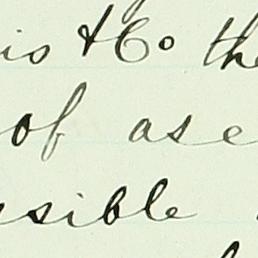 is & Co the
of ase
sible